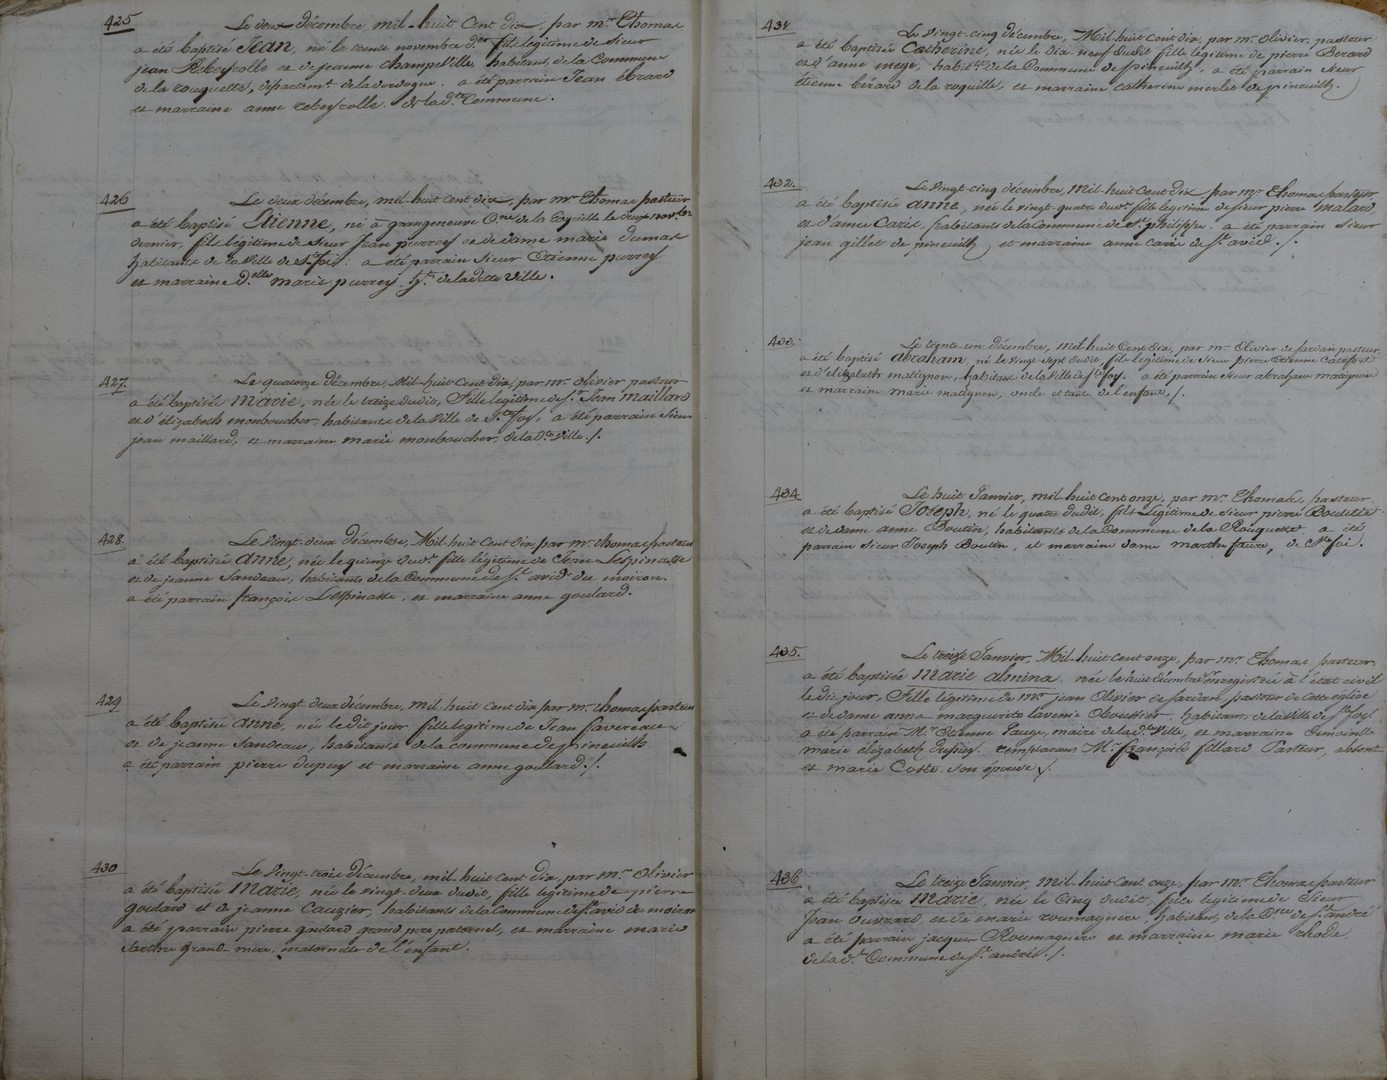 425
Le deux décembre, mil-huit Cent dix, par mr. Thomas
a été baptisé Jean, né le trente novembre der. fils légitime de sieur
jean Rebeyrolle et de jeanne Champeville, habitans de la Commune
de la rouquette, départemt. de la dordogne. a été parrain Jean ébrard
et marraine anne rebeyrolle. de la dte. Commune.
426
Le deux décembre, mil huit cent dix, par mr. Thomas pasteur
a été baptisé Etienne, né à grangeneuve Cne. de la roquille le deux novbre
dernier, fils légitime de sieur jean purrey et de dame marie dumas
habitants de la ville de Ste. foi: a été parrain sieur Etienne purrey
et marraine d.elle marie purrey. de la dette ville.
427
Le quatorze décembre, Mil-huit Cent dix, par mr. olivier pasteur
a été baptisé Marie, née le treize dudit, fille légitime de Sr. Jean Maillard
et d'élizabeth monboucher, habitants de la ville de Ste. foy, a été parrain sieur
jean maillard, et marraine marie monboucher, de la de. ville ./.
428
Le vingt-deux décembre, Mil huit Cent dix, par mr. thomas pasteur
a été baptisé anne, née le quinze dudt. fille légitime de Jean Lespinasse
et de jeanne Sandeau, habitants de la Commune de St. avid du moiron.
a été parrain françois Lespinasse, et marraine anne goulard.
429
Le vingt deux décembre, mil huit Cent dix par mr. thomas pasteur
a été baptisé anne, née le dit jour fille légitime de Jean favereau
et de jeanne Sandeau, habitants de la commune de pineuilh
a été parrain pierre dupuy et marraine anne goulard ./.
430
Le vingt-trois décembre, mil-huit cent dix, par mr. Olivier
a été baptisée Marie, née le vingt-deux dudit, fille légitime de pierre
goulard et de jeanne Cauzier, habitants de la Commune de St. avid de moiron
a été parrain pierre goulard grand père paternel, et marraine marie
Sarthre grand-mère, maternelle de l'enfant.
431
Le vingt-cinq décembre, Mil huit cent dix, par mr. Olivier, pasteur
a été baptisée Catherine, née le dix neuf dudit fille légitime de pierre Bérard
et d'anne mège, habitts. de la Commune de pineuilh, a été parrain sieur
étienne bérard de la roquille, et marraine catherine merlet de pineuilh.
432.
Le vingt-cinq décembre, Mil huit Cent dix par mr. thomas pasteur,
a été baptisé anne, née le vingt-quatre dudt. fille légitime de sieur pierre malard
et d'anne Carié, habitants de la Commune de St. philippe: a été parrain sieur
jean gillet de pineuilh, et marraine anne carié de St. avid ./.
433.
Le trente-un décembre, mil-huit Cent dix, par mr. Olivier de sardan pasteur
a été baptisé abraham, né le vingt sept dudit, fils légitime de sieur pierre Etienne
et d'elizabeth matignon, habitans de la ville de Ste. foy. a été parrain sieur abraham matignon
et marraine marie matignon, oncle et tante de l'enfant ./.
434
Le huit Janvier, mil-huit cent onze, par mr. Thomas, pasteur
a été baptisé Joseph, né le quatre dudit, fils légitime de sieur pierre
et de dame anne Boutin, habitants de la Commune de la Rouquette a été
parrain sieur Joseph Boutin, et marraine dame marthe faure, de Ste. foi.
435.
Le treize Janvier, Mil-huit cent onze, par mr. Thomas pasteur,
a été baptisée Marie almina née le huit décembre enregistrée à l'état civil
le dix jour, Fille légitime de Mr. jean Olivier de sardan pasteur de cette église
et de dame anne marguerite lavenia habitans de la ville de Ste. foy
a été parrain Mr. Etienne Pauze, maire de la de. Ville, et marraine demoiselle
marie elizabeth dupuy. remplaçans Mr. françois fillard Pasteur, absent
et marie Coste son épouse ./.
436
Le treize Janvier, mil-huit cent onze, par mr. Thomas pasteur
a été baptisée Marie, née le Cinq dudit, fille légitime de sieur
Jean ouvrard et de marie roumagnere, habitans de la Cne. de St. andré
a été parrain jacques Roumagnere et marraine marie rhode
de la de. Commune de St. andré ./.